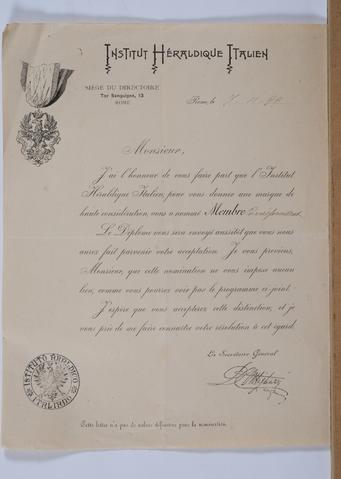 INSTITUT HÉRALDIQUE ITALIEN
SIÈGE DU DIRECTOIRE
Tor Sanguigna, 13
ROME
Rome, le
Monsieur,
J'ai l'honneur de vous faire part que l'Institut
Héraldique Italien, pour vous donner une marque de
haute considération, vous a nommé Membre
Le Diplome vous sera envoyé aussitôt que vous nous
aurez fait parvenir votre acceptation. Je vous préviens,
Monsieur, que cette nomination ne vous impose aucun
lien, comme vous pourrez voir par le programme ci-joint.
J'espère que vous accepterez cette distinction, et je
vous prie de me faire connaître votre résolution à cet égard.
Le Secrétaire Général
ISTITUTO ARALDICO
ITALIANO
Cette lettre n'a pas de valeur définitive pour la nomination.